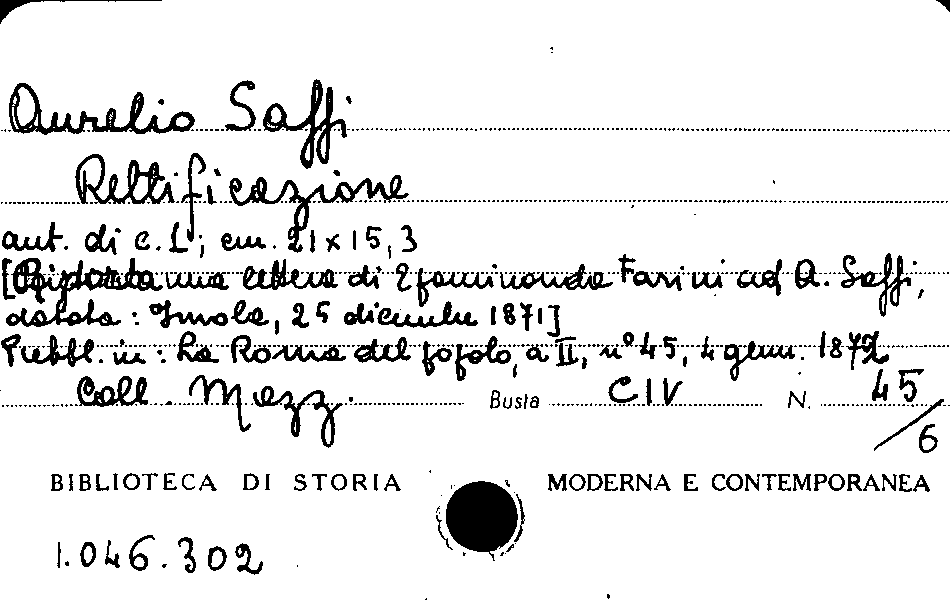 Aurelio Saffi
Rettificazione
aut. di c. 1; cm. 21 x 15,3
[Riporta una lettera di Epaminonda Farini ad A. Saffi,
datata: Imola, 25 dicembre 1871]
Pubbl. in: La Roma del popolo, a II, n° 45, 4 genn. 1872
Coll. Mazz. Busta CIV N. 45/6
BIBLIOTECA DI STORIA MODERNA E CONTEMPORANEA
1.046.302